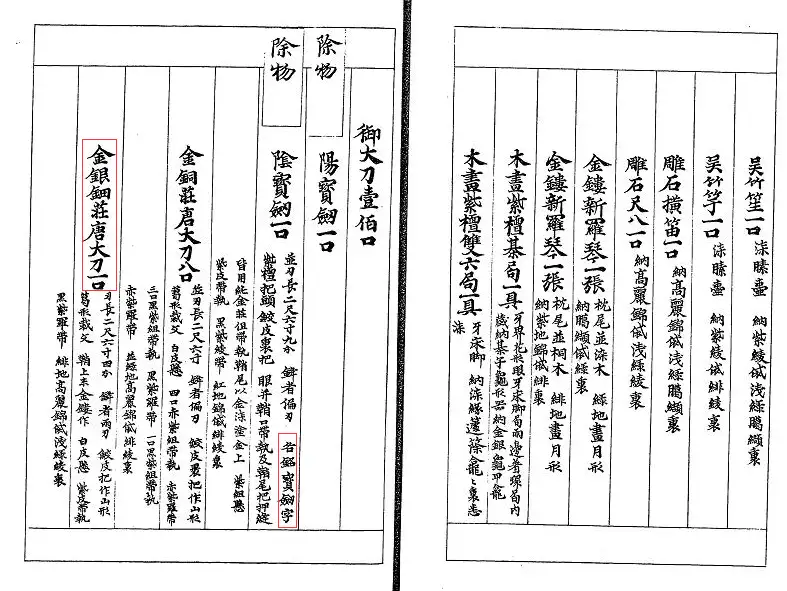 吴竹笙一口 漆騰壷 納紫綾帒浅緑臈纈裏
吴竹竽一口 漆騰壷 納紫綾帒緋綾裏
雕石橫笛一口 納高麗錦帒浅緑臈纈裏
雕石尺八一口 納高麗錦帒浅緑綾裏
金鏤新羅琴一張 枕尾並染木 緑地畫月形
納臈纈帒緑裏
金鏤新羅琴一張 枕尾並桐木 緋地畫月形
納紫地錦帒緋裏
木畫紫檀棊局一具 牙界花形眼牙床脚局兩邊著環局内
藏納棊子龜形器納金銀龜甲龕
木畫紫檀雙六局一具 牙床脚 納漆縁籧篨龕々裏悉
漆
御大刀壹佰口
除物
陽寶劒一口
除物
陰寶劒一口 並刃長二尺六寸九分 鋒者偏刃 各銘寶劒字
紫檀把頭 鮫皮裹把 眼并鞘口帶執及鞘尾把押縫
皆用純金莊但帶執鞘尾以金漆塗金上 紫組懸
紫皮帶執 黒紫綾帶 紅地錦帒緋綾裏
金銅莊唐大刀八口 並刃長二尺六寸 鋒者偏刃 鮫皮裹把作山形
葛形裁文 白皮懸 四口赤紫組帶執 赤紫羅帶
三口黒紫組帶執 黒紫羅帶 一口黒紫組帶執
赤紫羅帶 並緑地高麗錦帒緋綾裏
金銀鈿莊唐大刀一口 刃長二尺六寸四分 鋒者兩刃 鮫皮把作山形
葛形裁文 鞘上末金鏤作 白皮懸 紫皮帶執
黒紫羅帶 緋地高麗錦帒浅緑綾裏